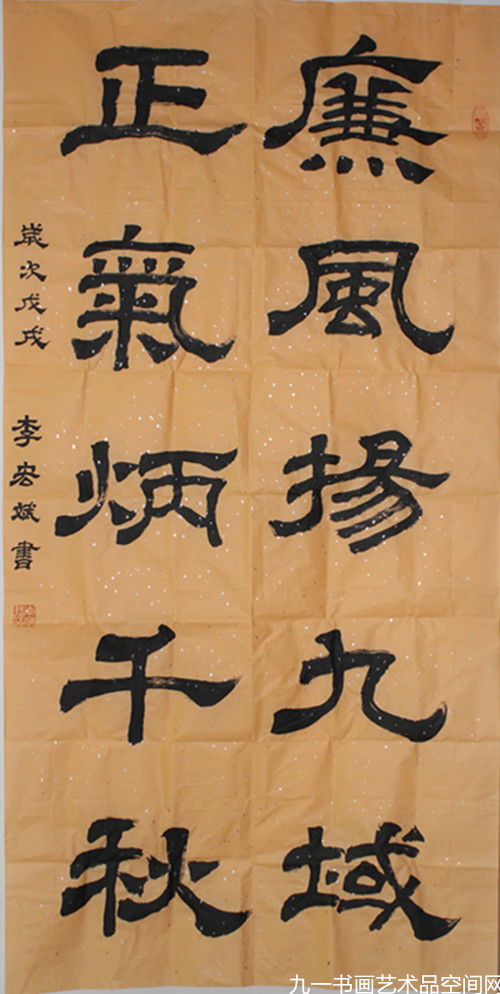 廉風揚九域
正氣炳千秋
歲次戊戌
李宏斌書
九一书画艺术品空间网